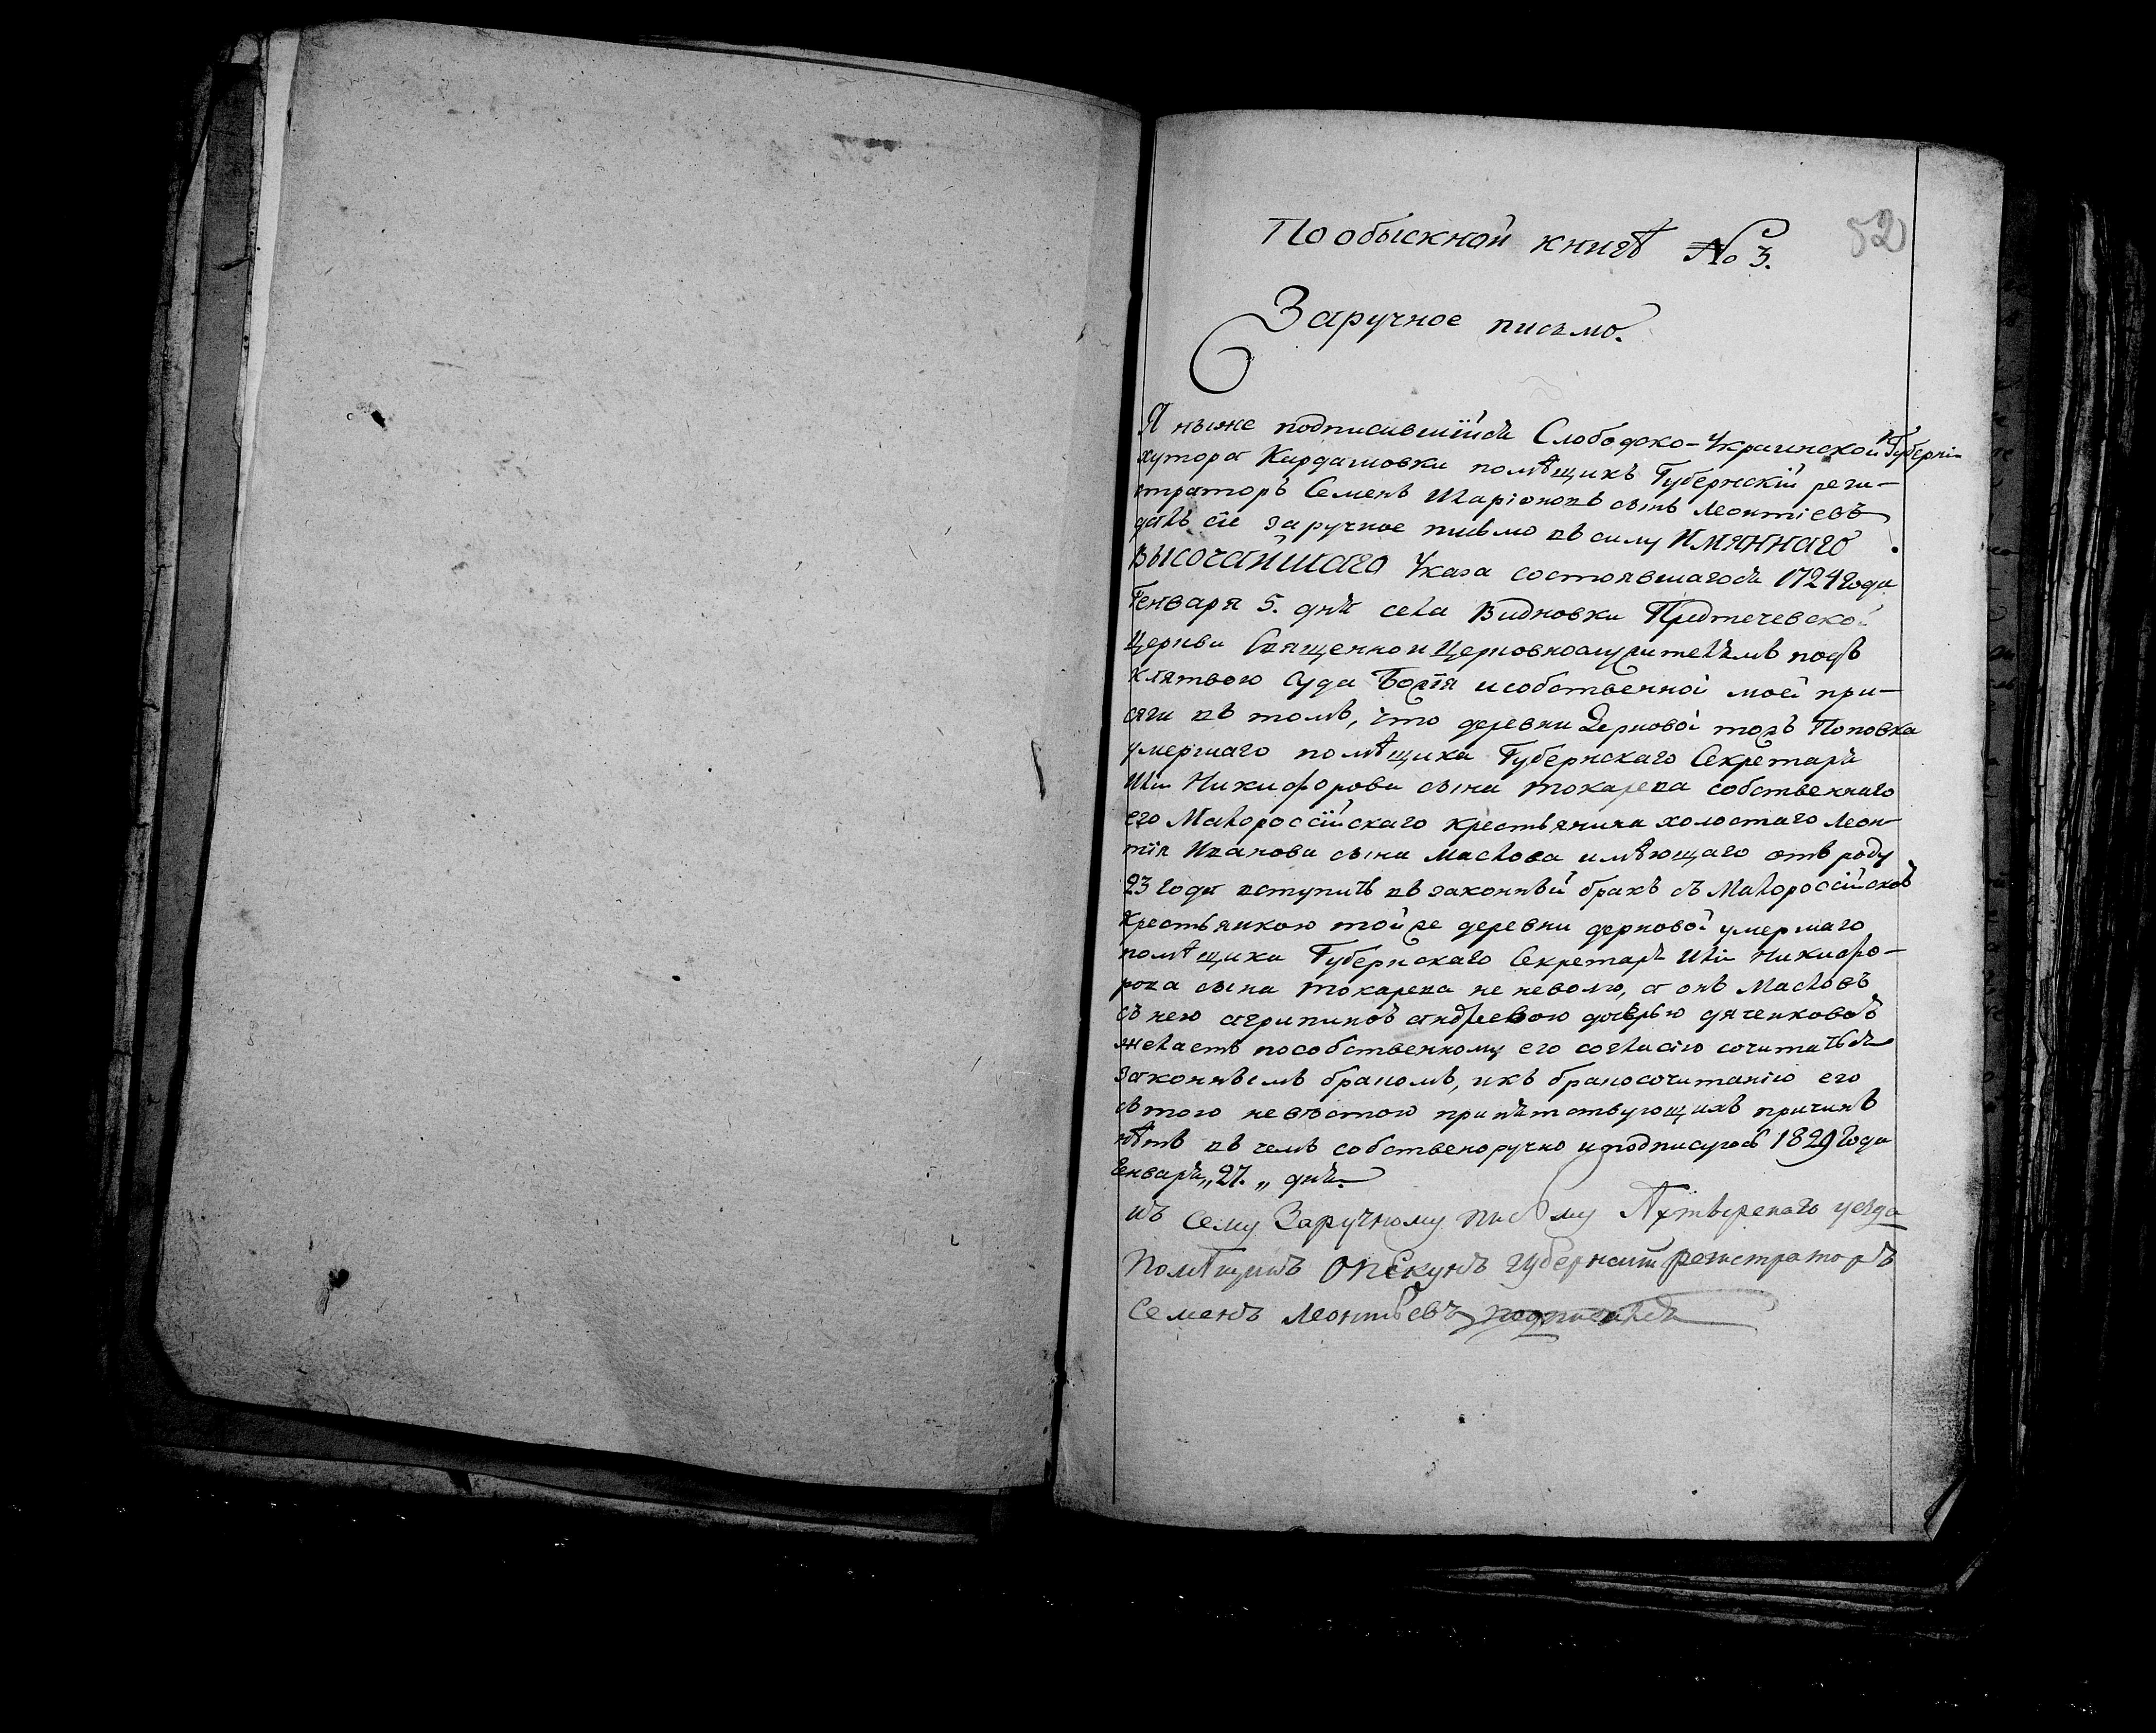 По обыскной книгѣ № 3.
52
Заручное письмо.
Я ниже подписавшійся Слободско-Украинской Губерніи
хутора Кардашовки помѣщикъ Губернскій реги-
страторъ Семенъ Иларіоновъ сынъ Леонтіевъ
далъ сіе заручное письмо въ силу Имяннаго
Высочайшаго Указа состоявшагося 1724 года
Генваря 5. дня села Видновки Предтечевской
Церкви Священно и Церковнослужителямъ подъ
клятвою Суда Божія и собственной моей при-
сяги въ томъ, что деревни Дерновой тожъ Поповка
умершаго помѣщика Губернскаго Секретаря
Ильи Никифорова сына Токарева собственнаго
его Малороссійскаго крестьянина холостаго Леон-
тія Иванова сына Маслова имѣющаго отъ роду
23 года вступить въ законный бракъ съ Малороссійскою
крестьянкою той же деревни дерновой умершаго
помѣщика Губернскаго Секретаря Ильи Никифо-
рова сына Токарева не неволю, а онъ Масловъ
съ нею агрипиною андреевою дочерью дяченковою
желаетъ по собственному его согласію сочитаться
законнымъ бракомъ, и къ бракосочитанію его
съ тою невѣстою препятствующихъ причинъ
нѣтъ въ чемъ собственоручно и подписуюсь 1829 года
Генваря „27.„ дня.
Къ сему Заручному письму Ахтырскаго уезда
Помѣщикъ Опекунъ губернский регистраторъ
Семенъ Леонтьевъ подписался